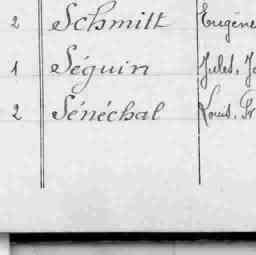 2 Schmitt Eugène
1 Séguin Jules, J
2 Sénéchal Louis, Fr